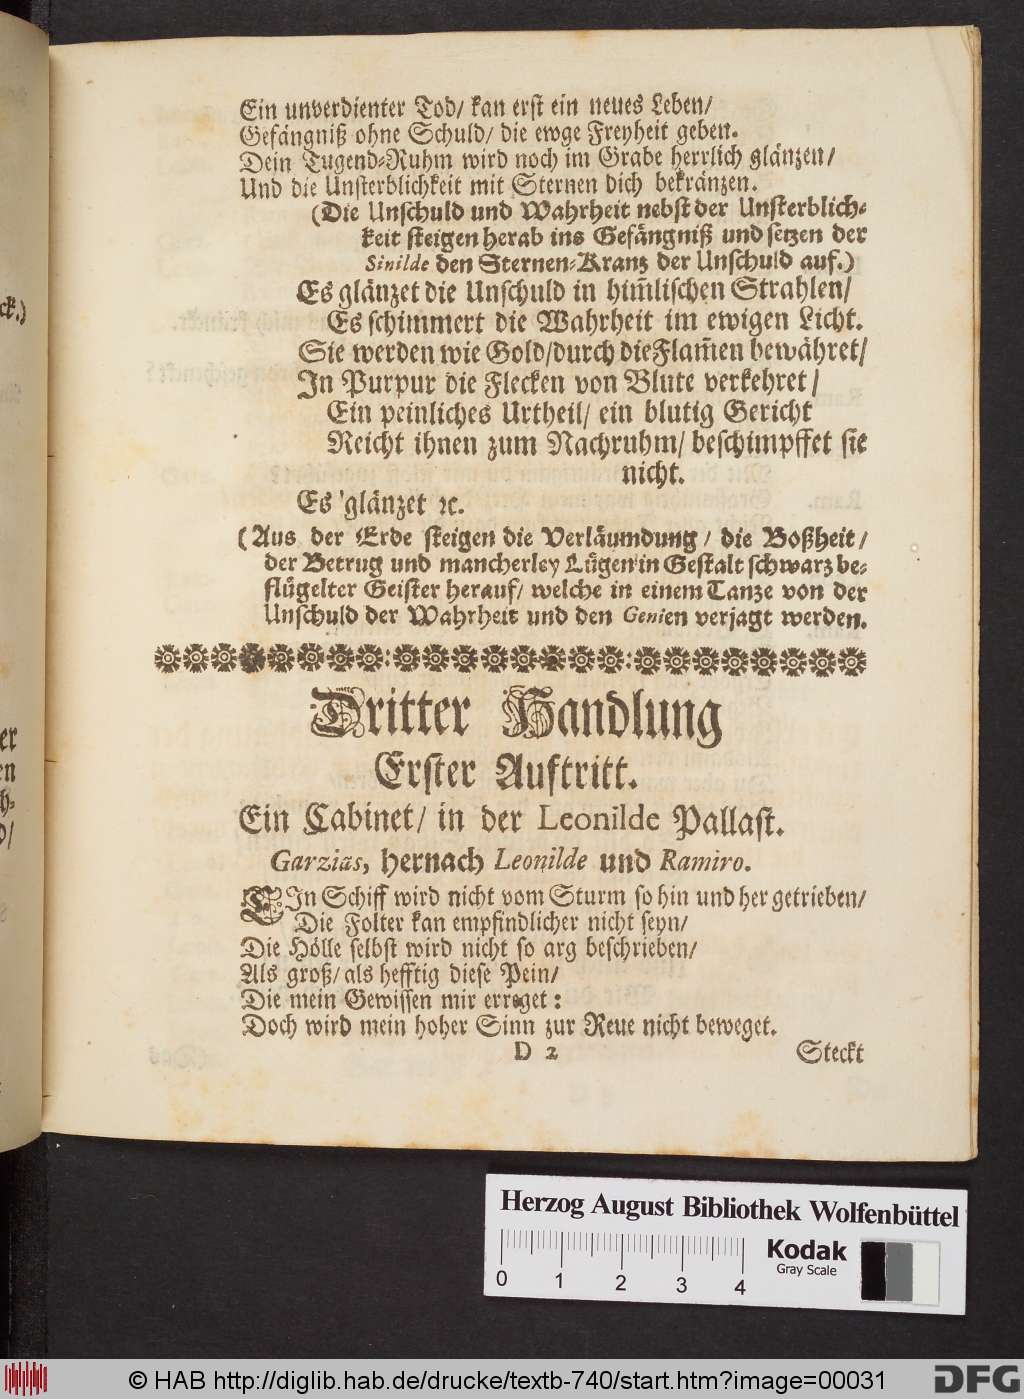 Ein unverdienter Tod/ kan erst ein neues Leben/
Gefängniß ohne Schuld/ die ewge Freyheit geben.
Dein Tugend-Ruhm wird noch im Grabe herrlich glänzen/
Und die Unsterblichkeit mit Sternen dich bekränzen.
(Die Unschuld und Wahrheit nebst der Unsterblich-
keit steigen herab ins Gefängniß und setzen der
Sinilde den Sternen-Kranz der Unschuld auf.)
Es glänzet die Unschuld in him̃lischen Strahlen/
Es schimmert die Wahrheit im ewigen Licht.
Sie werden wie Gold/durch die Flam̃en bewähret/
In Purpur die Flecken von Blute verkehret/
Ein peinliches Urtheil/ ein blutig Gericht
Reicht ihnen zum Nachruhm/ beschimpffet sie
nicht.
Es glänzet ꝛc.
(Aus der Erde steigen die Verläumdung/ die Boßheit/
der Betrug und mancherley Lügen in Gestalt schwarz be-
flügelter Geister herauf/ welche in einem Tanze von der
Unschuld der Wahrheit und den Genien verjagt werden.
Dritter Handlung
Erster Auftritt.
Ein Cabinet/ in der Leonilde Pallast.
Garzias, hernach Leonilde und Ramiro.
EIn Schiff wird nicht vom Sturm so hin und her getrieben/
Die Folter kan empfindlicher nicht seyn/
Die Hölle selbst wird nicht so arg beschrieben/
Als groß/ als hefftig diese Pein/
Die mein Gewissen mir erreget:
Doch wird mein hoher Sinn zur Reue nicht beweget.
D 2 Steckt
Herzog August Bibliothek Wolfenbüttel
Kodak
Gray Scale
0 1 2 3 4
© HAB http://diglib.hab.de/drucke/textb-740/start.htm?image=00031
DFG